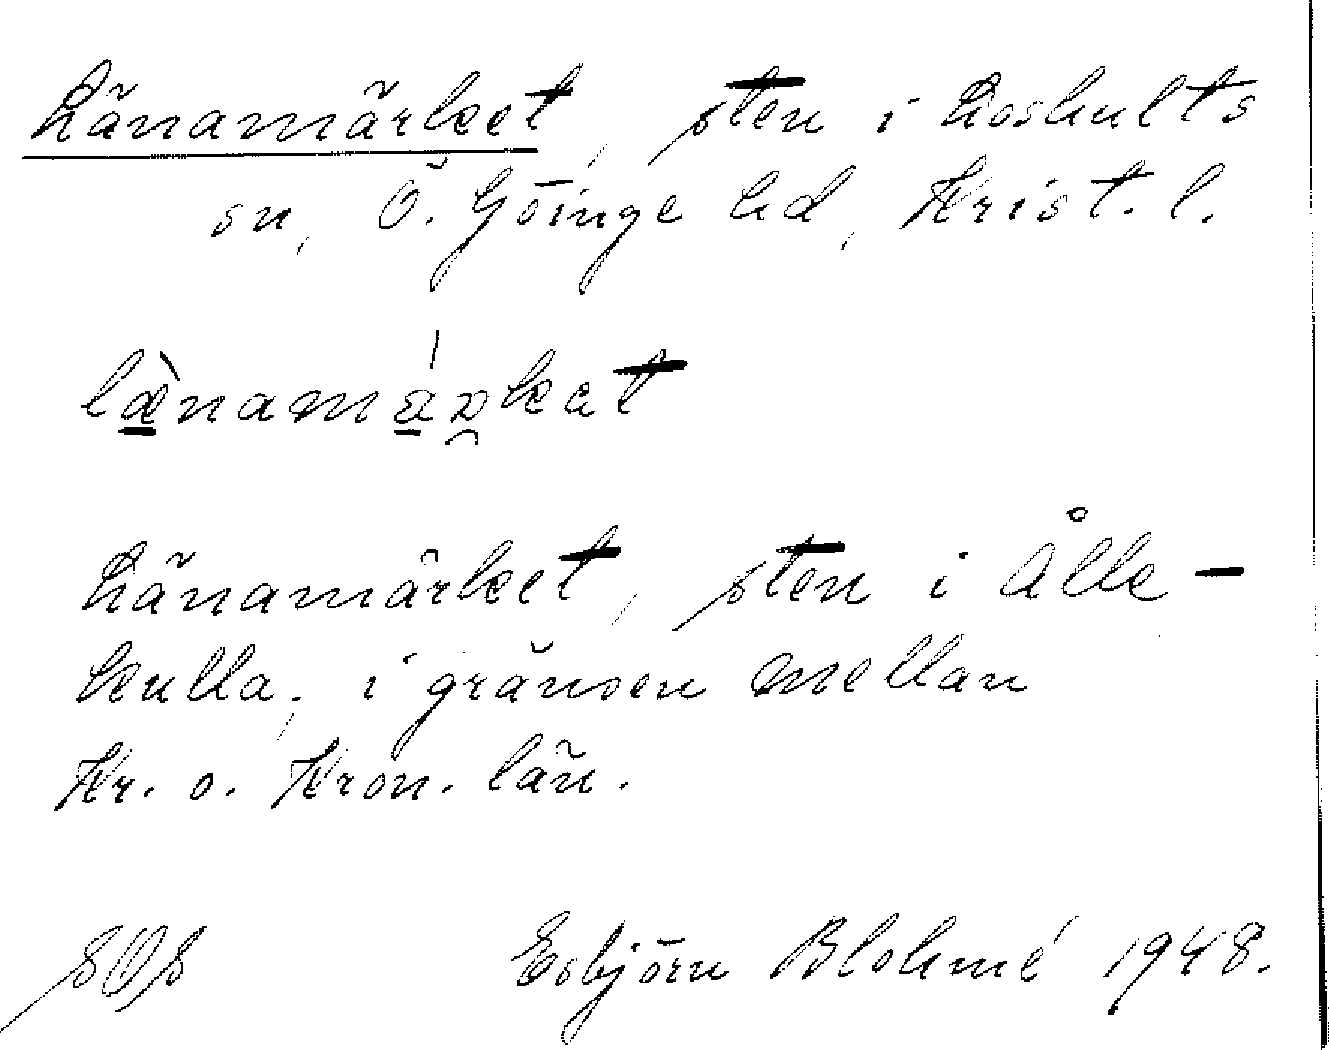 Länamärket, sten i Loshults
sn, Ö. Göinge hd, Krist. l.
læ̀namáʀkat
Länamärket, sten i Ålle-
kulla, i gränsen mellan
Kr. o. Kron. län.
Esbjörn Blohmé 1948.